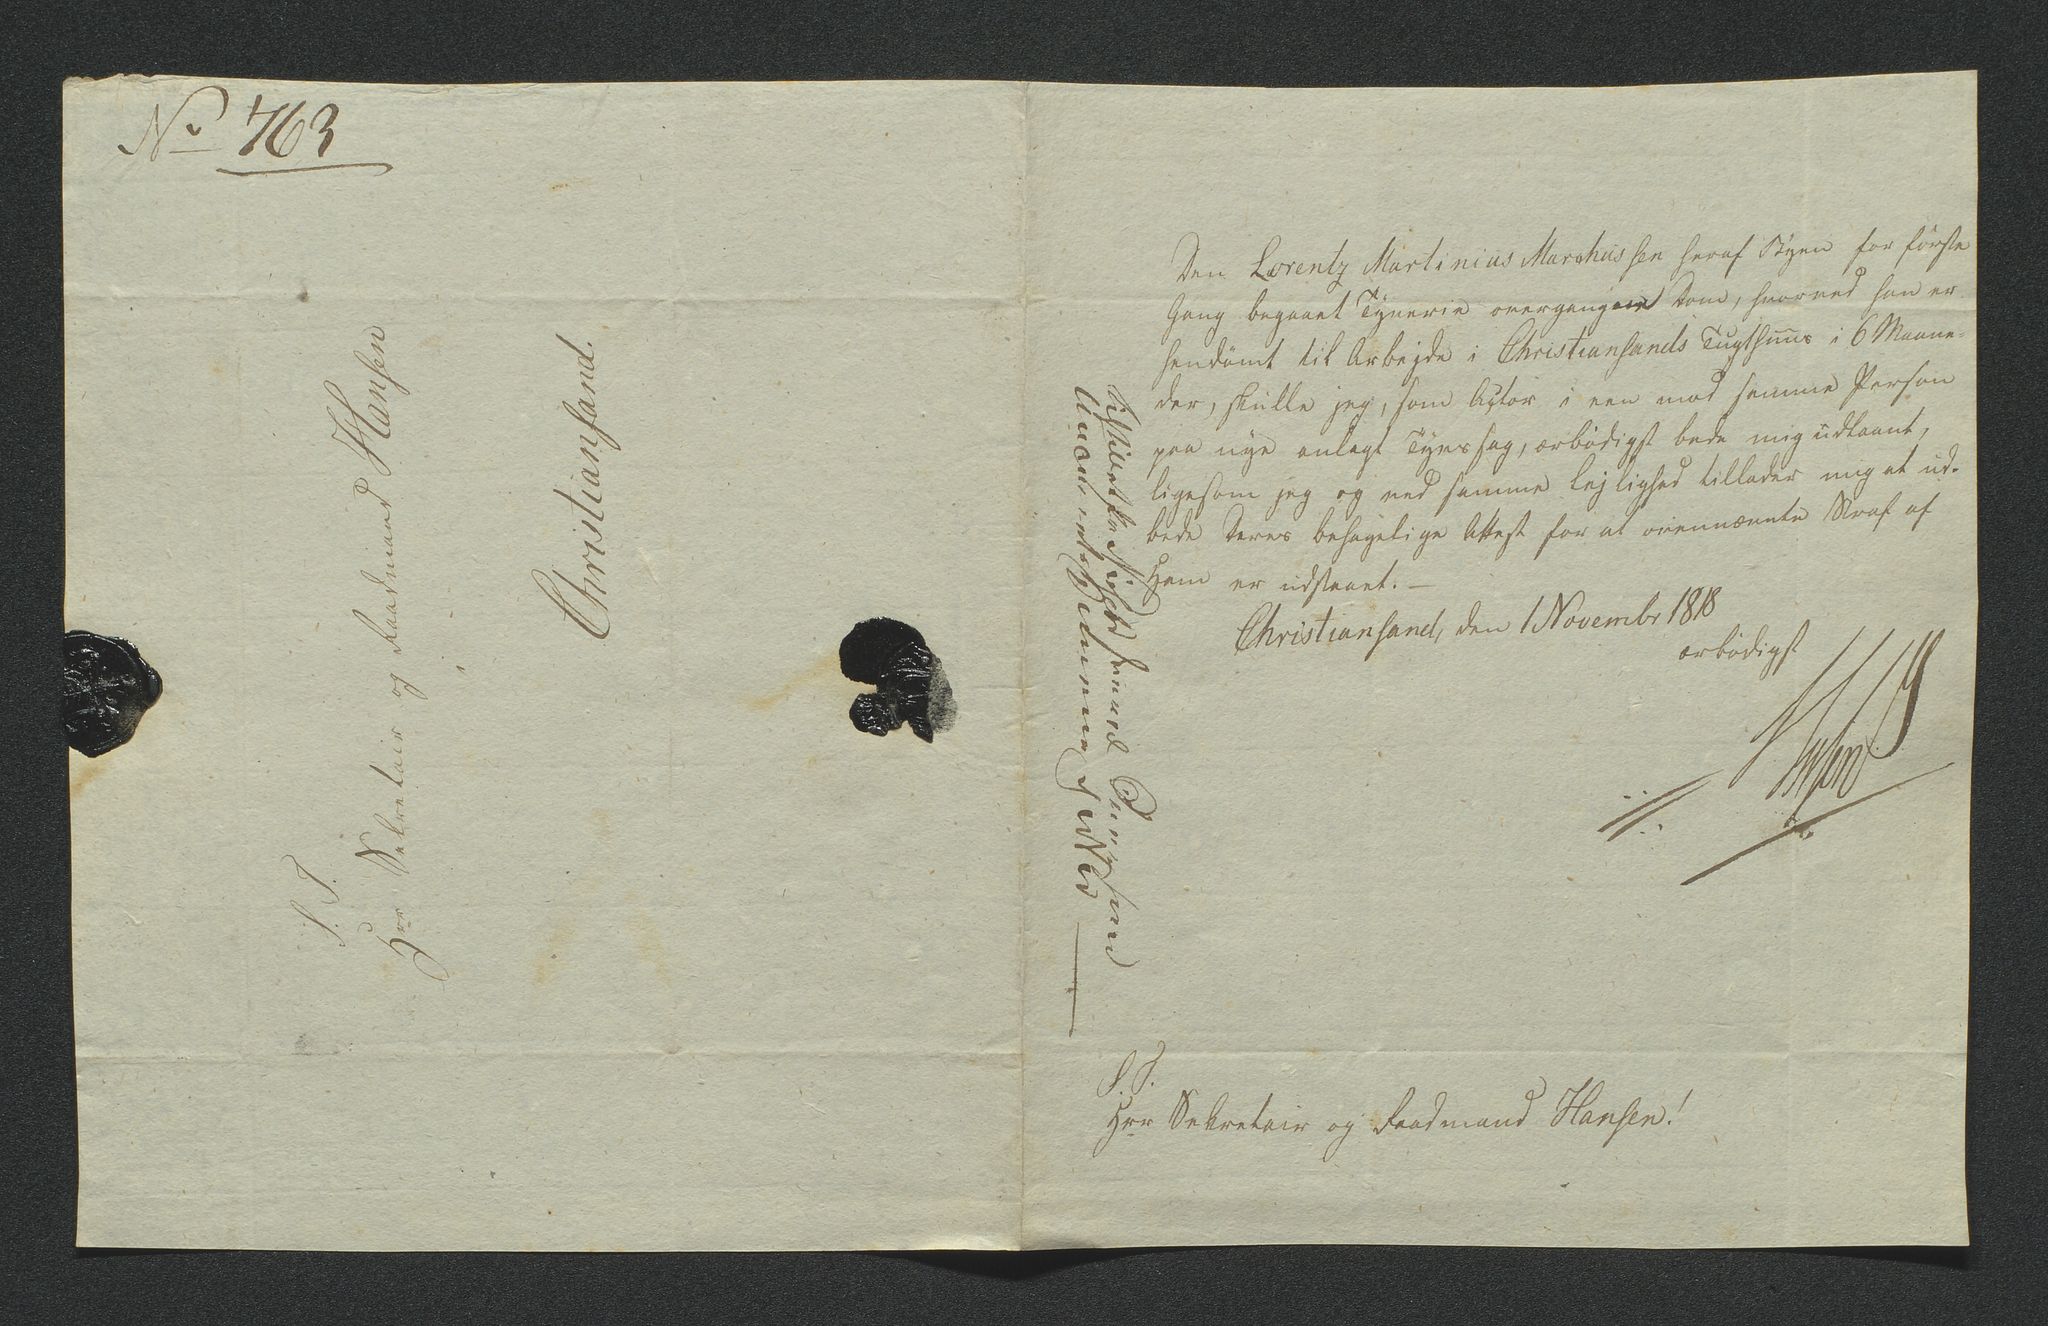 No 763
S. T.
Hrr Sekretair og Raadmand Hansen
Christiansand.
Den Lorentz Martinius Marchussen heraf Byen for förste
Gang begaaet Tyverie overgangne Dom, hvorved han er
hendömt til Arbejde i Christiansands Tugthuus i 6 Maane-
der, skulle jeg, som Actor i een mod samme Person
paa nye anlagt Tyvssag, ærbödigst bede mig udlaant,
ligesom jeg og ved samme Lejlighed tillader mig at ud-
bede Deres behagelige Attest for at ovennævnte Straf af
Ham er udstaaet. —
Christiansand, den 1 Novembr 1818
ærbödigst
S. T.
Hrr Sekretair og Raadmand Hansen!